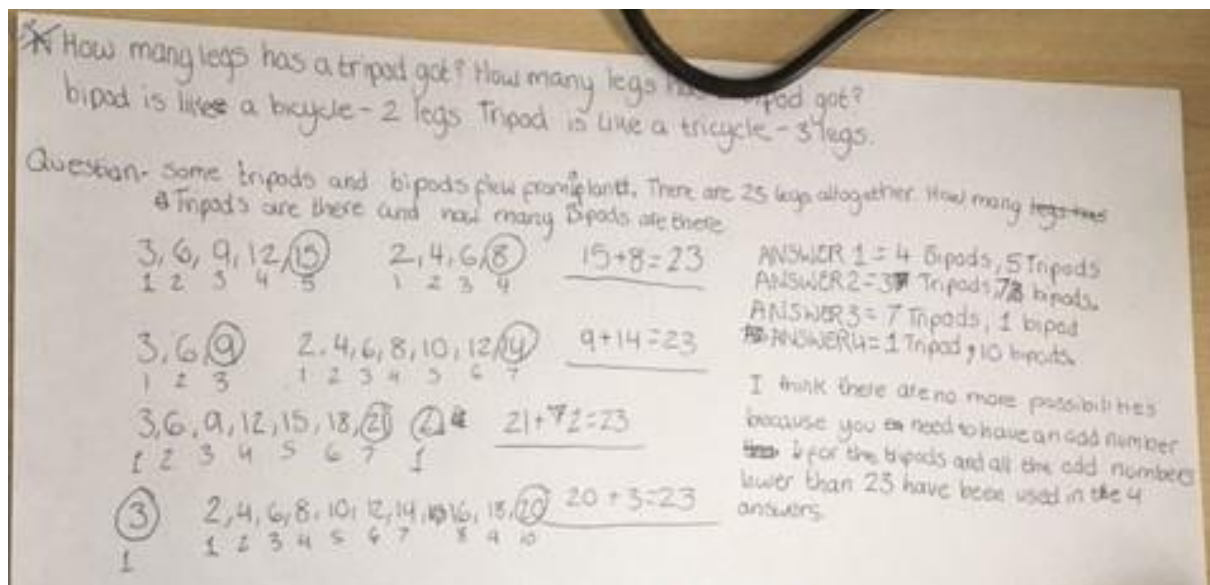 How many legs has a tripod got? How many legs got?
bipod is like a bicycle - 2 legs Tripod is like a tricycle - 3 legs.
Question - Some tripods and bipods flew from planet. There are 25 legs altogether. How many
Tripods are there and how many Bipods are there
3, 6, 9, 12, 15 2, 4, 6, 8 15+8=23
1 2 3 4 5 1 2 3 4
3, 6, 9 2, 4, 6, 8, 10, 12, 14 9+14=23
1 2 3 1 2 3 4 5 6 7
3, 6, 9, 12, 15, 18, 21 2 21+2=23
1 2 3 4 5 6 7 1
3 2, 4, 6, 8, 10, 12, 14, 16, 18, 20 20+3=23
1 1 2 3 4 5 6 7 8 9 10
ANSWER 1 = 4 Bipods, 5 Tripods
ANSWER 2 = 3 Tripods, 7 bipods.
ANSWER 3 = 7 Tripods, 1 bipod
ANSWER 4 = 1 Tripod, 10 bipods.
I think there are no more possibilities
because you need to have an odd number
for the tripods and all the odd numbers
lower than 23 have been used in the 4
answers.